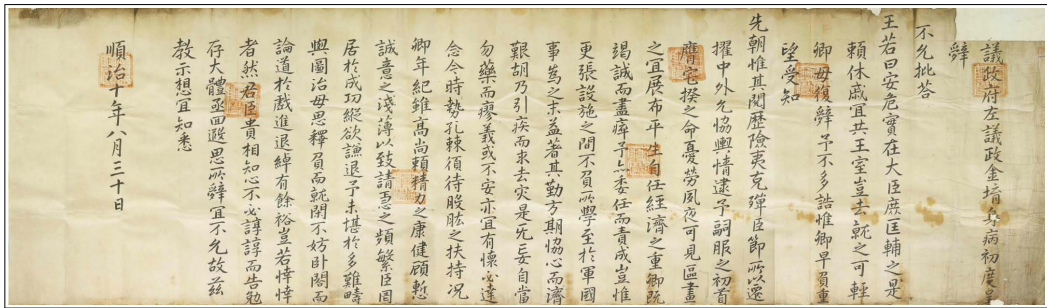 議政府左議政金堉身病初度呈
辭
不允批荅
王若曰安危實在大臣庶匡輔之是
賴休戚宜共王室豈去就之可輕
卿毋復辭予不多誥惟卿早負重
望受知
先朝惟其閱歷險夷克殫臣節所以還
擢中外允協輿情逮予嗣服之初首
膺宅揆之命憂勞夙夜可見區畫
之宜展布平生自任經濟之重卿旣
竭誠而盡瘁予亦委任而責成豈惟
更張設施之間不負所學至於軍國
事爲之末益著其勤方期協心而濟
艱胡乃引疾而求去灾是无妄自當
勿藥而瘳義或不安亦宜有懷必達
念今時勢孔棘須待股肱之扶持况
卿年紀雖高尚賴精力之康健顧慙
誠意之淺薄以致請告之頻繁臣罔
居於成功縱欲謙退予未堪於多難疇
與圖治毋思釋負而就閑不妨卧閤而
論道於戲進退綽有餘裕豈若悻悻
者然君臣貴相知心不必諄諄而告勉
存大體亟回遐思所辭宜不允故玆
教示想宜知悉
順治十年八月三十日